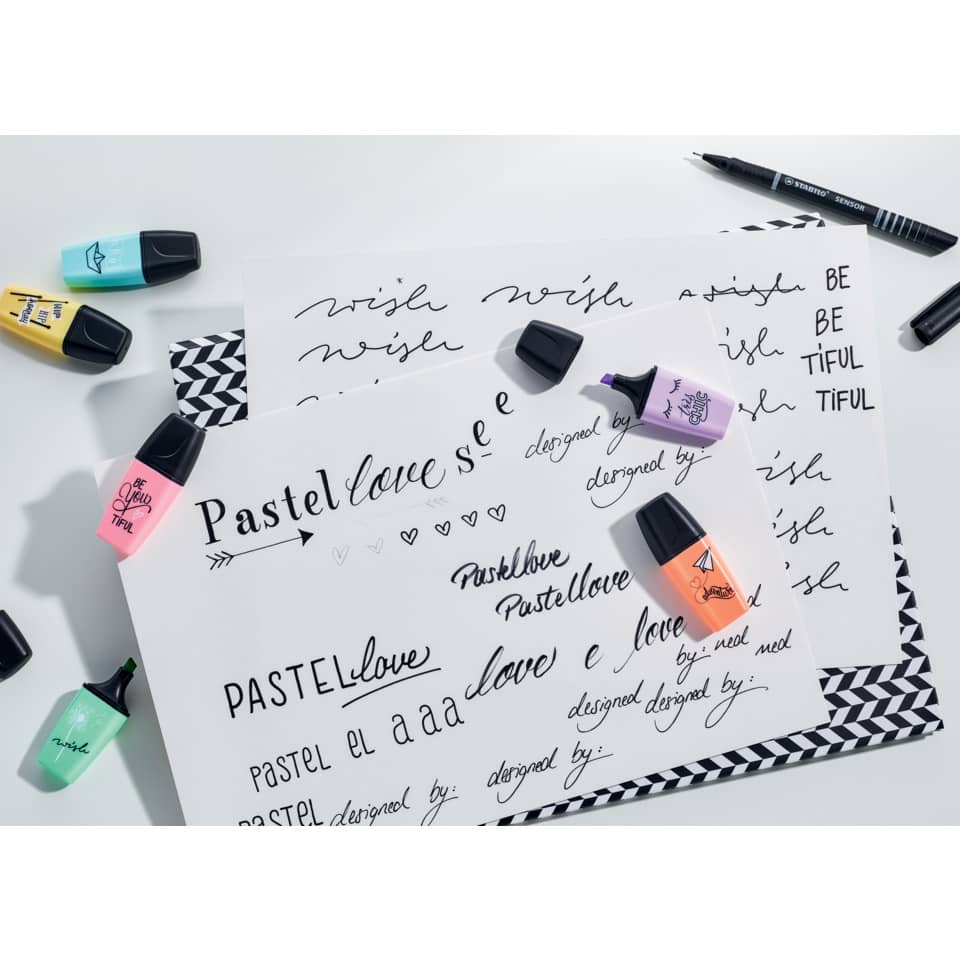 STABILO SENSOR
HIP HIP
HURRAY
wish wish wish BE
wish wish BE
TiFUL
wish TiFUL
très
CHIC
e
designed by
designed by:
Pastel love se
BE
YOU
TIFUL
wish
wish
wish
Pastellove
Pastellove
adventure
love
PASTEL love
love e
by: ned ned
designed designed by:
wish
PASTEL EL a a a
designed by:
PASTEL designed by: